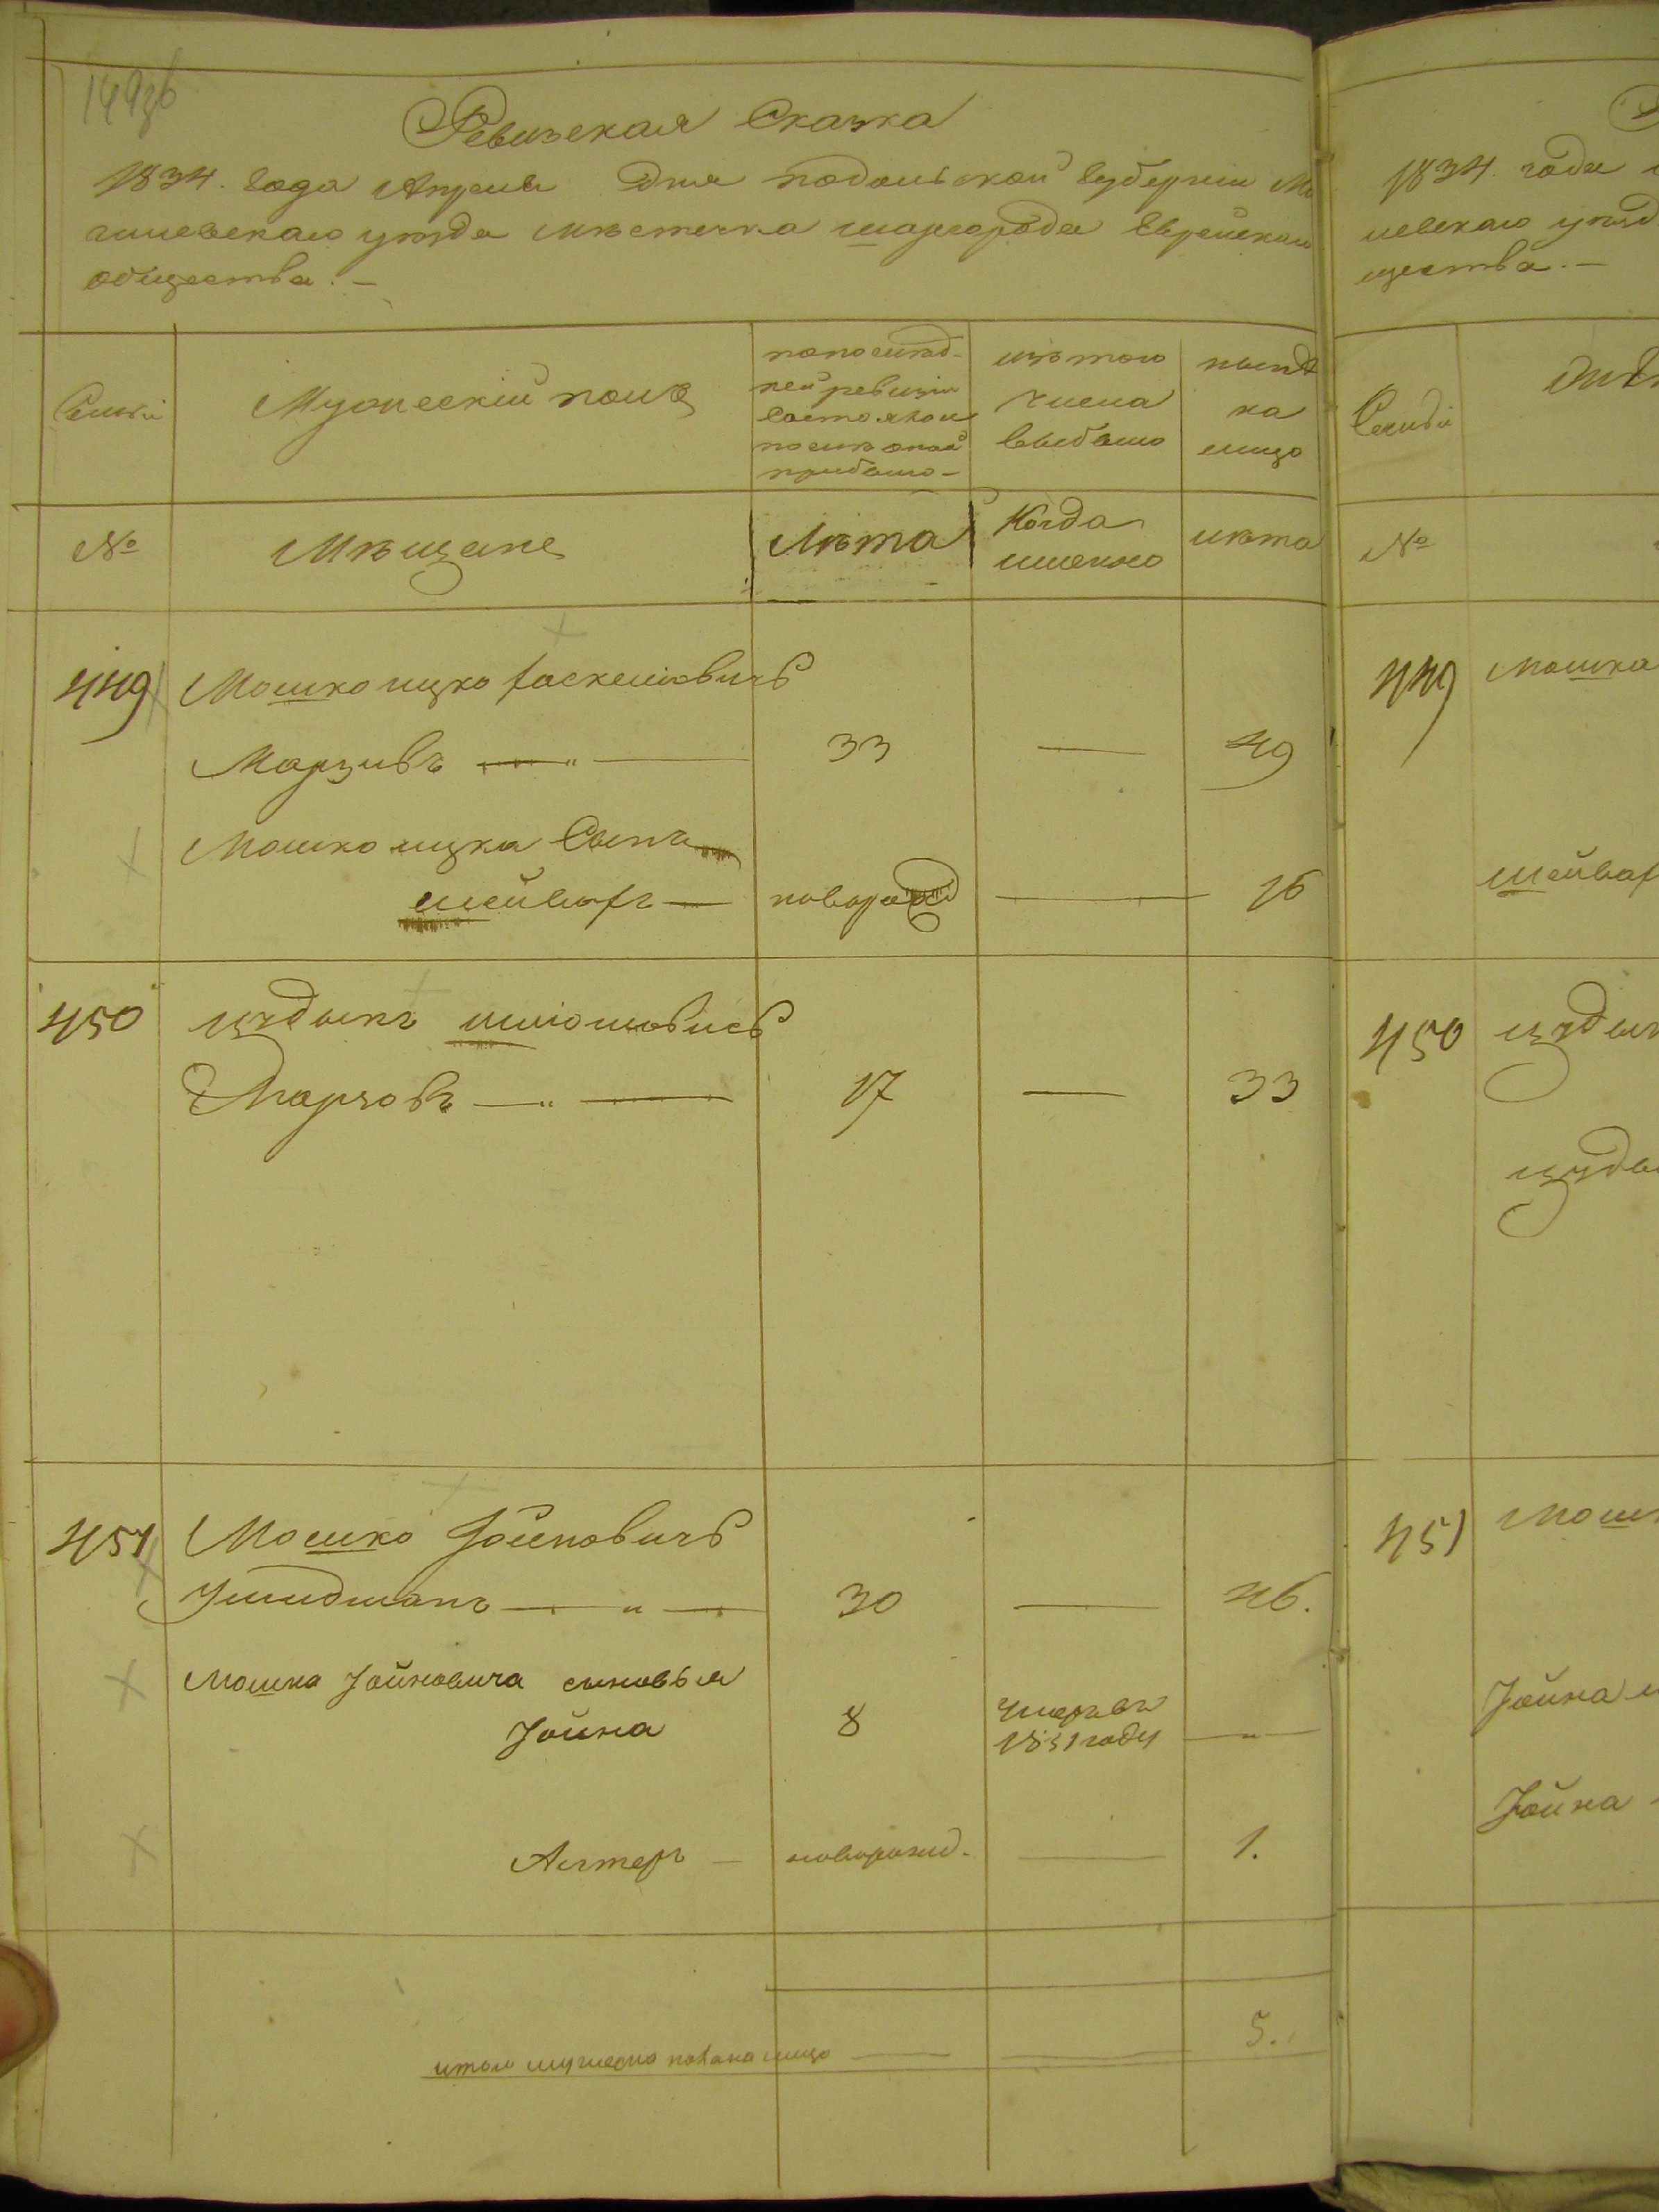 149
Ревизская Сказка
1834. года Апреля Дня подольской губернiи Мо
гилевскаго уезда мѣстечка шаргорода Еврейскаго
общества. —
Семьи
Мужескiй полъ
по послѣд-
ней ревизiи
состояло и
после оной
прибыло —
изъ того
числа
выбыло
нынѣ
на
лицо
№
Мѣщане
Лѣта
Когда
именно
лѣта
449
Мошко ицко Хаскелiовичъ
33 — 49
Мошко ицка Сынъ
шейвахъ — новорожд — 16
450
шлiомовичъ
17 — 33
451
Мошко Iойновичъ
Шмидманъ — " — 30 — 46.
Мошка Iойновича сыновья
Iойна 8 Умеръ въ
1831 году — " —
Алтеръ — новорожд. — 1.
итого мужеска пола на лицо — 5.
1834 года
уезд
щества. —
Семьи
№
449
Мошка
шейвах
450
451
Мошк
Iойна
Iойна